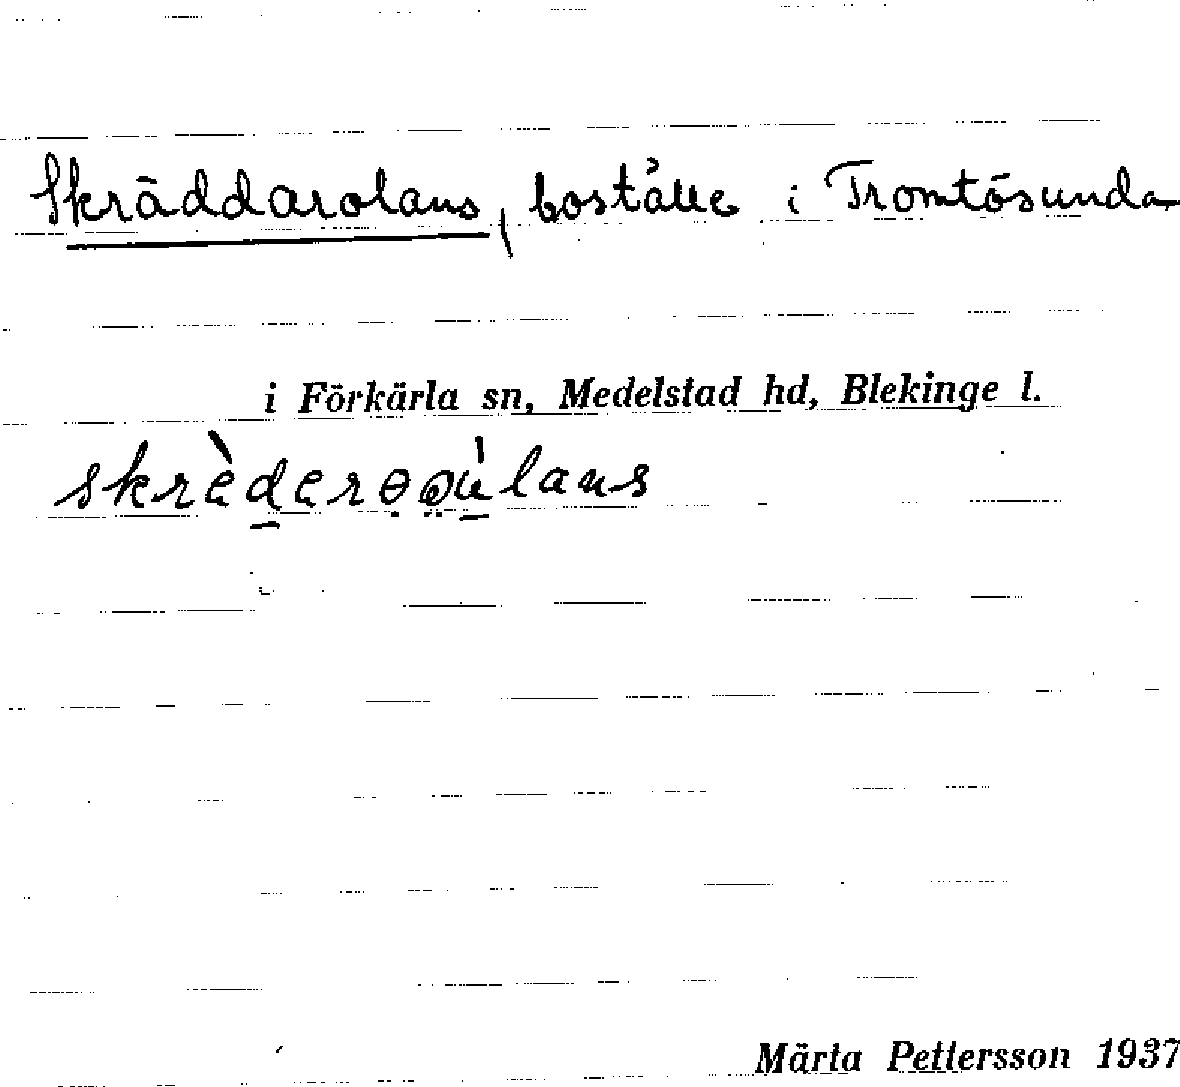 Skräddarolans, boställe i Tromtösunda
i Förkärla sn, Medelstad hd, Blekinge l.
Märta Pettersson 1937